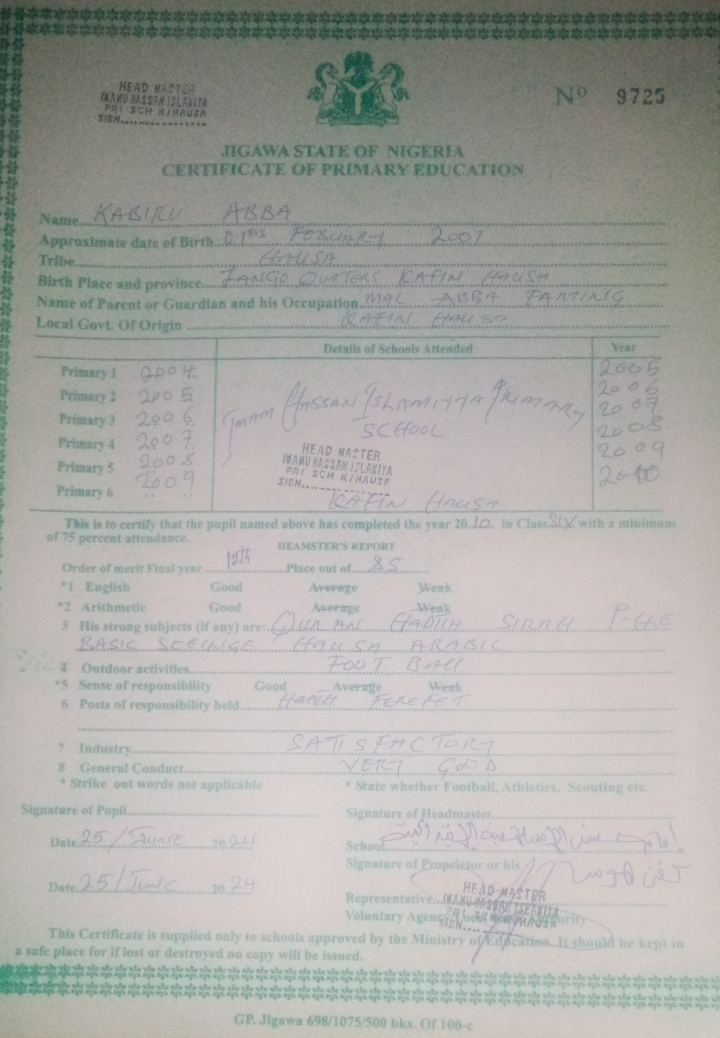 HEAD MASTER
IMAMU HASSAN ISLAMIYA
PRI SCH K/HAUSA
SIGN..............
Nº 9725
JIGAWA STATE OF NIGERIA
CERTIFICATE OF PRIMARY EDUCATION
Name KABIRU ABBA
Approximate date of Birth FEBUARY
Tribe HAUSA
Birth Place and province ZANGO QUATERS KAFIN HAUSA
Name of Parent or Guardian and his Occupation MAL ABBA FARTING
Local Govt. Of Origin KAFIN HAUSA
Details of Schools Attended Year
Primary 1 2004 2005
Primary 2 2005 2006
Primary 3 2006 2007
Primary 4 2007 2008
Primary 5 2008 2009
Primary 6 2009 2010
IMAM HASSAN ISLAMIYYA PRIMARY
SCHOOL
HEAD MASTER
IMAMU HASSAN ISLAMIYA
PRI SCH K/HAUSA
SIGN..............
KAFIN HAUSA
This is to certify that the pupil named above has completed the year 2010 in Class SIX with a minimum
of 75 percent attendance.
HEAMSTER'S REPORT
Order of merit Final year 12th Place out of 85
*1 English Good Average Weak
*2 Arithmetic Good Average Weak
3 His strong subjects (if any) are: QURAN HADITH SIRAH P-HE
BASIC SCEINGE HAUSA ARABIC
4 Outdoor activities FOOT BALL
*5 Sense of responsibility Good Average Weak
6 Posts of responsibility held
7 Industry SATISFACTORY
8 General Conduct VERY GOOD
* Strike out words not applicable * State whether Football, Athletics, Scouting etc.
Signature of Pupil Signature of Headmaster
Date 25/JUNE 2024 School
Signature of Proprietor or his
Date 25/JUNE 2024 Representative
HEAD MASTER
IMAMU HASSAN ISLAMIYA
PRI SCH K/HAUSA
SIGN
Voluntary Agency/Local Authority
This Certificate is supplied only to schools approved by the Ministry of Education. It should be kept in
a safe place for if lost or destroyed no copy will be issued.
GP. Jigawa 698/1075/500 bks. Of 100-c